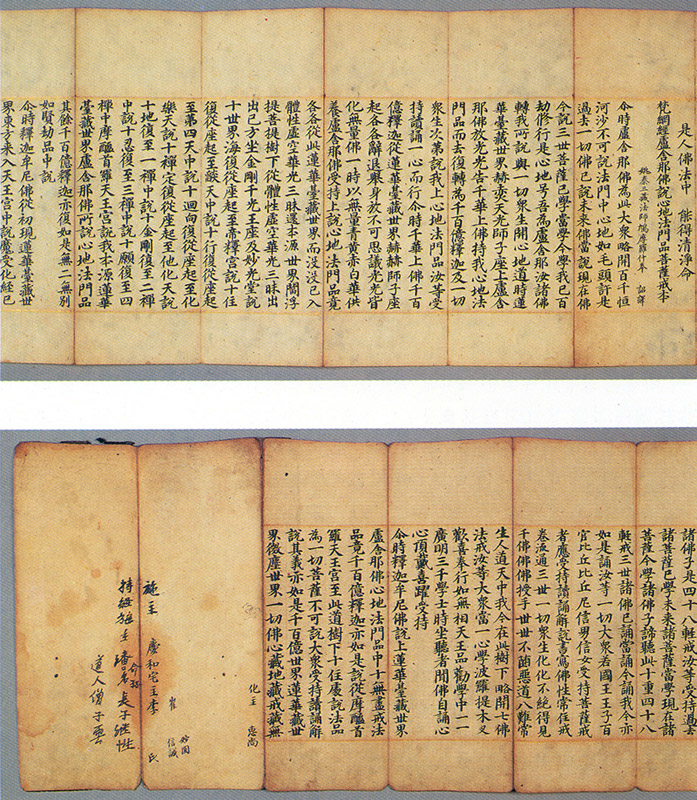 是人佛法中 能得清淨命
梵網經盧舍那佛說心地法門品菩薩戒本
姚秦三藏法師鳩摩羅什奉 詔譯
尒時盧舍那佛為此大衆略開百千恒
河沙不可說法門中心地如毛頭許是
過去一切佛已說未來佛當說現在佛
今說三世菩薩已學當學今學我已百
劫修行是心地号吾為盧舍那汝諸佛
轉我所說與一切衆生開心地道時蓮
華臺藏世界赫赫天光師子座上盧舍
那佛放光光告千華上佛持我心地法
門品而去復轉為千百億釋迦及一切
衆生次第說我上心地法門品汝等受
持讀誦一心而行尒時千華上佛千百
億釋迦從蓮華臺藏世界赫赫師子座
起各各辭退擧身放不可思議光光皆
化無量佛一時以無量青黃赤白華供
養盧舍那佛受持上說心地法門品竟
各各從此蓮華臺藏世界而沒沒已入
體性虛空華光三昧還本源世界閻浮
提菩提樹下從體性虛空華光三昧出
出已方坐金剛千光王座及妙光堂說
十世界海復從座起至帝釋宮說十住
復從座起至談天中說十行復從座起
至第四天中說十迴向復從座起至化
樂天說十禪定復從座起至他化天說
十地復至一禪中說十金剛復至二禪
中說十忍復至三禪中說十願復至四
禪中摩醯首羅天王宮說我本源蓮華
臺藏世界盧舍那佛所說心地法門品
其餘千百億釋迦亦復如是無二無別
如賢劫品中說
尒時釋迦牟尼佛從初現蓮華臺藏世
界東方來入天王宮中說魔受化經已
諸佛子是四十八輕戒汝等受持過去
諸菩薩已學未來諸菩薩當學現在諸
菩薩今學諸佛子諦聽此十重四十八
輕戒三世諸佛已誦當誦今誦我今亦
如是誦汝等一切大衆若國王王子百
官比丘比丘尼信男信女受持菩薩戒
者應受持讀誦解說書寫佛性常住戒
卷流通三世一切衆生化化不絕得見
千佛佛佛授手世世不墮惡道八難常
生人道天中我今在此樹下略開七佛
法戒汝等大衆當一心學波羅提木叉
歡喜奉行如無相天王品勸學中一一
廣明三千學士時坐聽者聞佛自誦心
心頂戴喜躍受持
尒時釋迦牟尼佛說上蓮華臺藏世界
盧舍那佛心地法門品中十無盡戒法
品竟千百億釋迦亦如是說從摩醯首
羅天王宮至此道樹下十住處說法品
為一切菩薩不可說大衆受持讀誦解
說其義亦如是千百億世界蓮華臺藏
界微塵世界一切佛心藏地藏戒藏無
化主
崔
妙因
信誠
施主 盧和宅主李 氏
長子
道人僧子雲